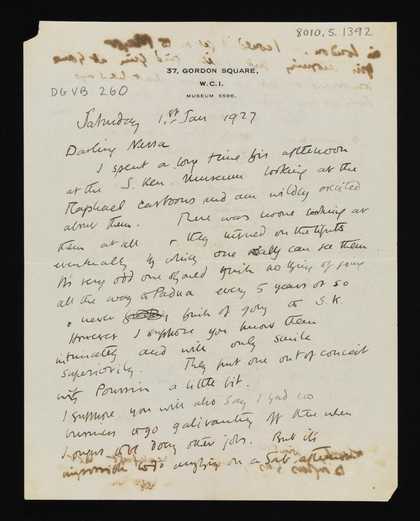 8010.5.1392
37, GORDON SQUARE,
W.C.1.
MUSEUM 5596.
DGVB 260
Saturday 1st Jan 1927
Darling Nessa
I spent a long time this afternoon
at the S. Ken. Museum looking at the
Raphael cartoons and am wildly excited
about them. There was no one looking at
them at all & they turned on the lights
eventually by which one really can see them
It's very odd one should think nothing of going
all the way to Padua every 5 years or so
& never think of going to S.K.
However I suppose you know them
intimately and will only smile
superiority. They put one out of conceit
with Poussin a little bit.
I suppose you will also say I had no
business to go galivanting off there when
I ought to be doing other jobs. But it's
impossible to do anything on a Sat. afternoon